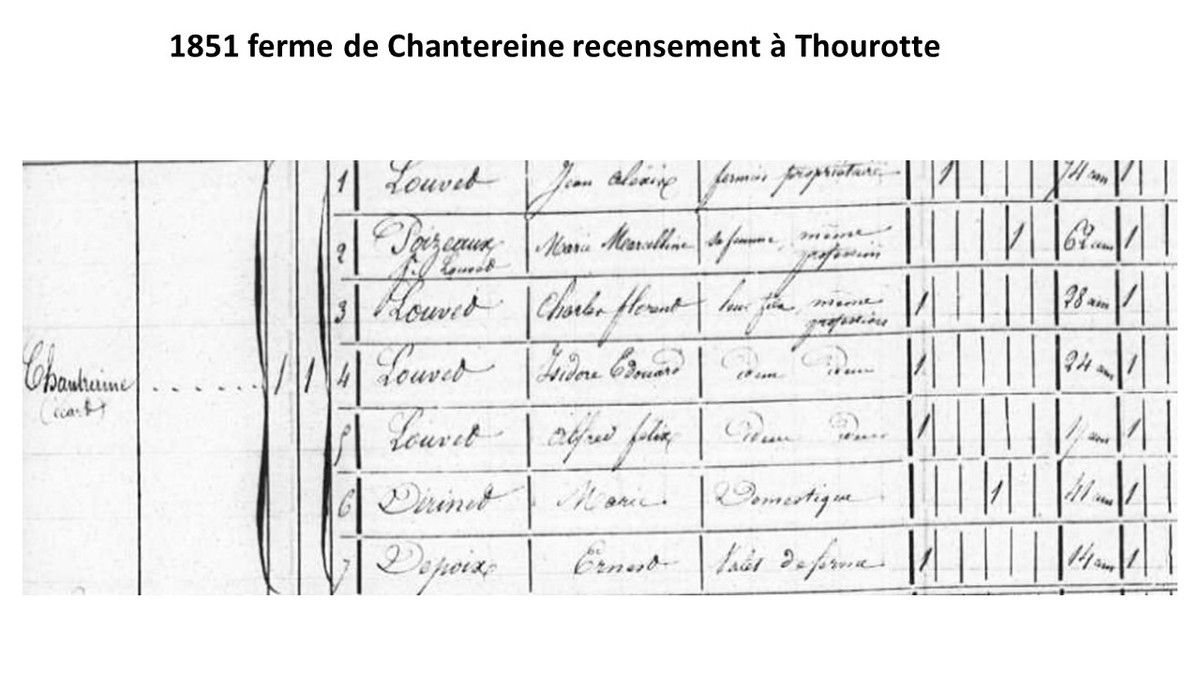 1851 ferme de Chantereine recensement à Thourotte
1 Louvet Jean fermier propriétaire 1 74 ans 1
2 Poizeaux Marie Marcelline sa femme, même 1 62 ans 1
Louvet profession
3 Louvet Charles florent leur fils, même 1 28 ans 1
profession
Chantereine 1 1 4 Louvet Isidore Edouard idem idem 1 24 ans 1
(écart)
5 Louvet Alfred félix idem idem 1 ans 1
6 Dérinet Marie Domestique 1 41 ans 1
7 Depoix Ernest Valet de ferme 1 14 ans 1